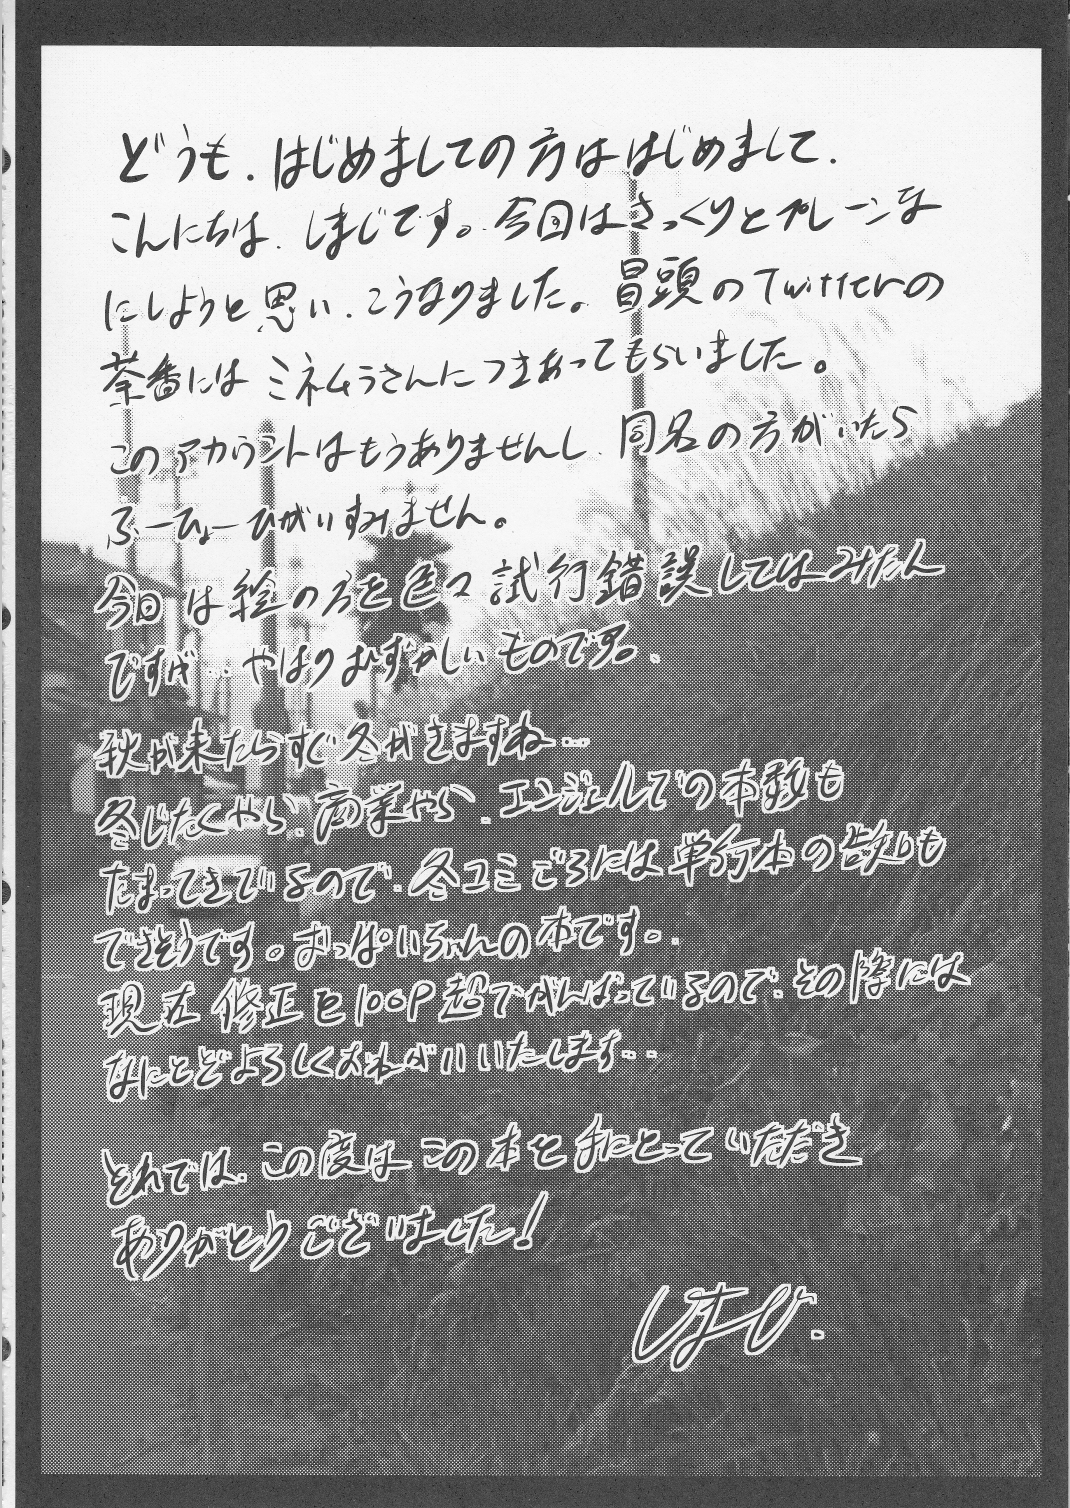 どうも、はじめましての方ははじめまして、
こんにちは、しまじです。今回はさっくりとプレーンな
にしようと思い、こうなりました。冒頭のTwitterの
茶番にはミネムラさんにつきあってもらいました。
このアカウントはもうありませんし、同名の方がいたら
ふーひょーひがいすみません。
今回は絵の方を色々試行錯誤してはみたん
ですが…やはりむずかしいものです。.
秋が来たらすぐ冬がきますね…
冬じたくやら、商業やら、エンジェルでの本数も
たまってきているので、冬コミごろには単行本の告知も
できそうです。おっぱいちゃんの本です..
現在修正を100P超でがんばっているので、その際には
なにとどよろしくおねがいいたします…
それでは、この度はこの本を手にとっていただき
ありがとうございました!